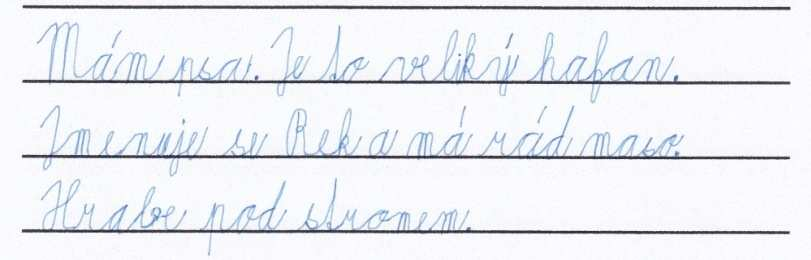 Mám psa. Je to veliký hafan.
Jmenuje se Rek a má rád maso.
Hrabe pod stromem.